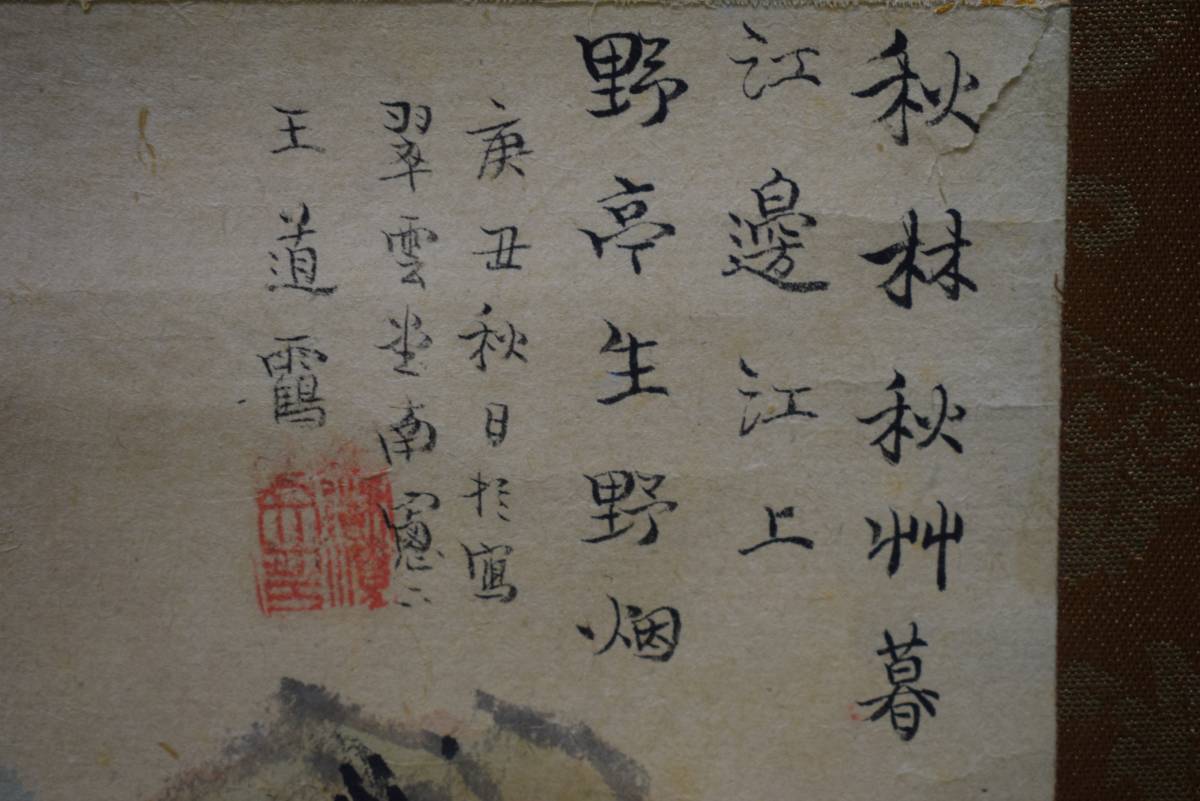 秋林秋艸暮
江邊江上
野亭生野烟
庚丑秋日於寫
翠雲堂南窻下
王道霱